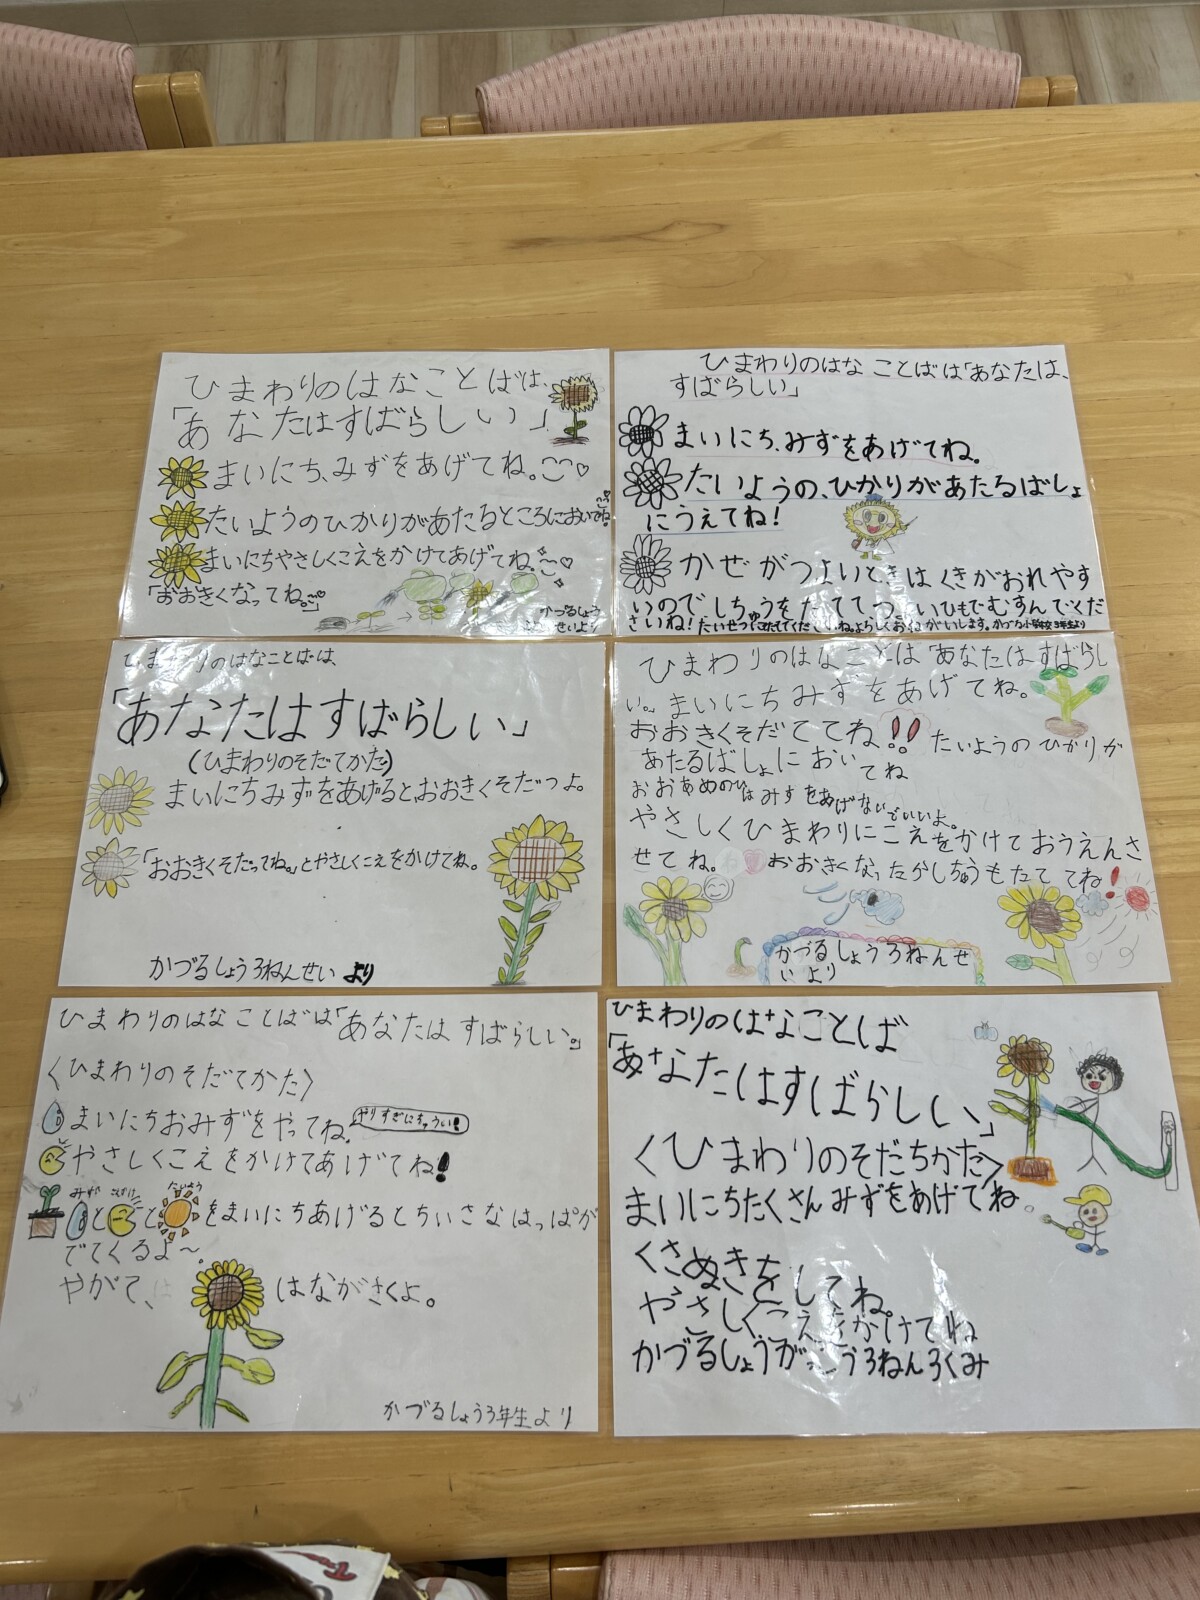 ひまわりのはなことばは、
「あなたはすばらしい」
まいにち、みずをあげてね。
たいようのひかりがあたるところにおいてね。
まいにちやさしくこえをかけてあげてね。
「おおきくなってね。」
かづるしょう
せいより
ひまわりのはな ことばは「あなたは、
すばらしい」
まいにち、みずをあげてね。
たいようの、ひかりがあたるばしょ
にうえてね!
かぜがつよいときはくきがおれやす
いのでしちゅうをたててつよいひもでむすんでくだ
さいね!たいせつにそだててくださいね。よろしくおねがいします。かづる小学校3年生より
ひまわりのはなことばは、
「あなたはすばらしい」
(ひまわりのそだてかた)
まいにちみずをあげると、おおきくそだつよ。
「おおきくそだってね。」とやさしくこえをかけてね。
かづるしょう3ねんせいより
ひまわりのはなことは「あなたはすばらし
い。」まいにちみずをあげてね。
おおきくそだててね!!たいようのひかりが
あたるばしょにおいてね
おおあめのひはみずをあげないでいいよ。
やさしくひまわりにこえをかけておうえんさ
せてね。おおきくなったらしちゅうもたててね!
かづるしょう3ねんせ
いより
ひまわりのはなことばは「あなたはすばらしい。」
〈ひまわりのそだてかた〉
まいにちおみずをやってね。やりすぎにちゅうい!
やさしくこえをかけてあげてね!
みず こえかけ たいよう
ととをまいにちあげるとちいさなはっぱが
でてくるよ〜。
やがて、はながさくよ。
かづるしょう3年生より
ひまわりのはなことば
「あなたはすばらしい、」
〈ひまわりのそだちかた〉
まいにちたくさんみずをあげてね
くさぬきをしてね。
やさしくこえをかけてね
かづるしょうがっこう3ねん3くみ